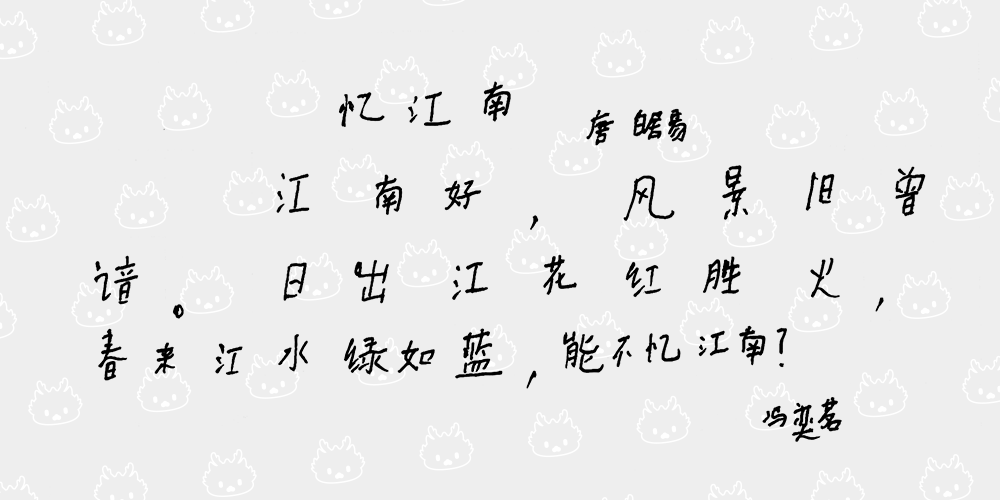 忆江南
唐 白居易
江南好，风景旧曾
谙。日出江花红胜火，
春来江水绿如蓝，能不忆江南？
冯奕茗